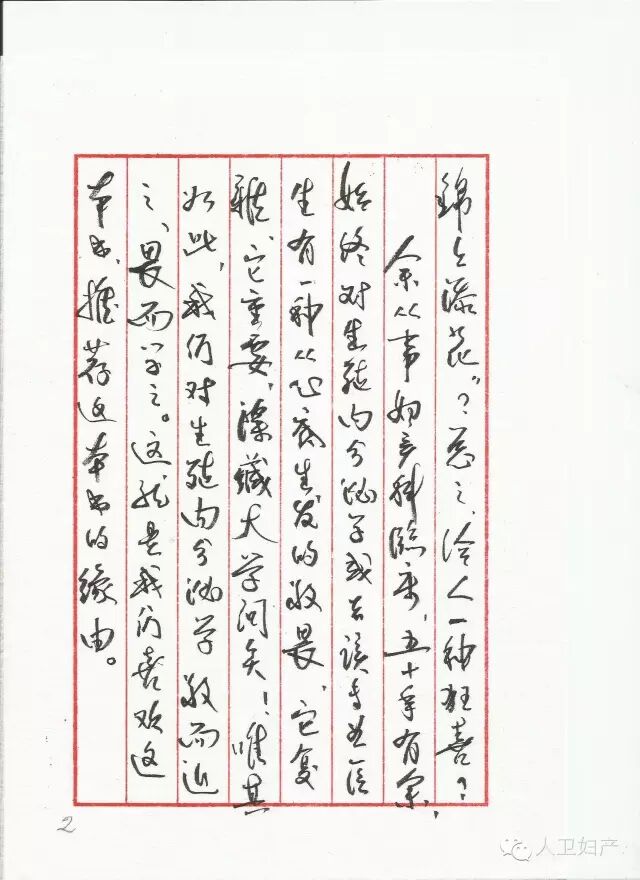 锦上添花”？总之，给人一种狂喜？
余从事妇产科临床，五十年有余，
始终对生殖内分泌学或者该专业医
生有一种从心底生发的敬畏，它复
雜、它重要，深藏大学问矣！，唯其
如此，我们对生殖内分泌学敬而近
之、畏而学之。这就是我们喜欢这
本书，推荐这本书的缘由。
2
人卫妇产